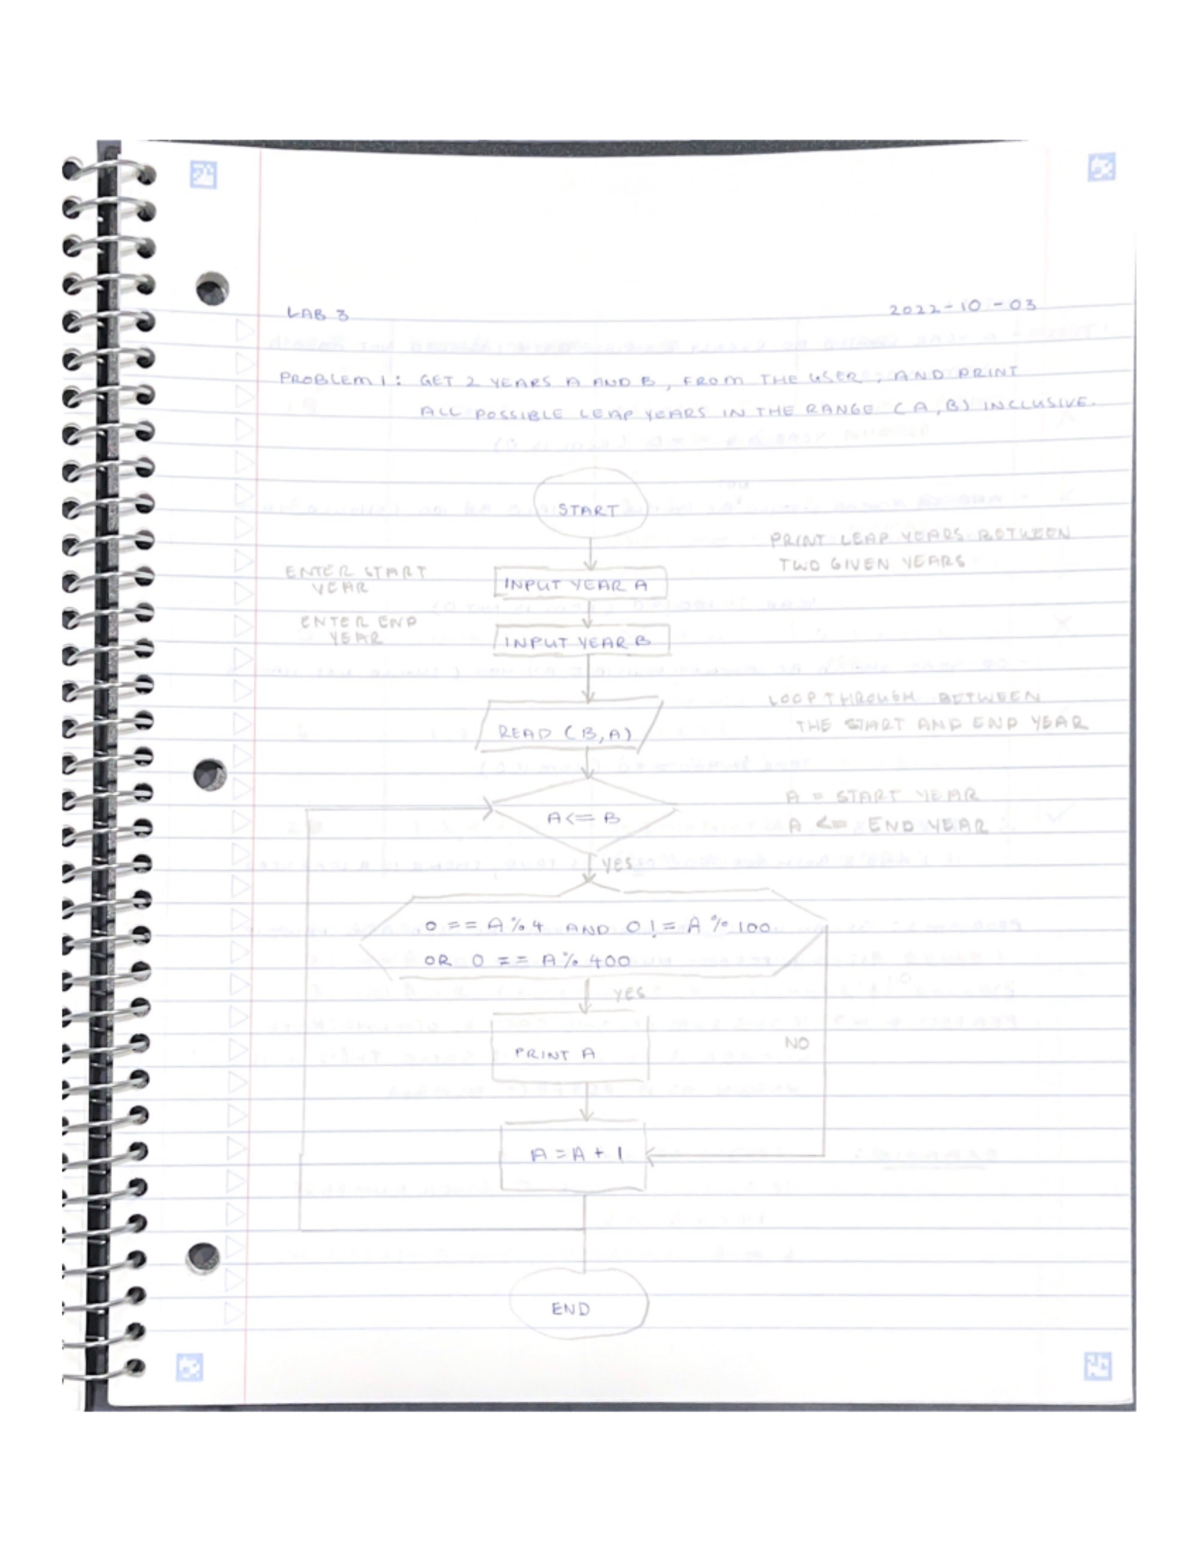 LAB 3 2022-10-03
PROBLEM 1: GET 2 YEARS A AND B, FROM THE USER, AND PRINT
ALL POSSIBLE LEAP YEARS IN THE RANGE (A,B) INCLUSIVE.
START
PRINT LEAP YEARS BETWEEN
TWO GIVEN YEARS
ENTER START
YEAR
INPUT YEAR A
ENTER END
YEAR
INPUT YEAR B
LOOP THROUGH BETWEEN
THE START AND END YEAR
READ (B,A)
A = START YEAR
A <= END YEAR
A <= B
YES
0 == A % 4 AND 0 != A % 100
OR 0 == A % 400
YES
PRINT A
NO
A = A + 1
END